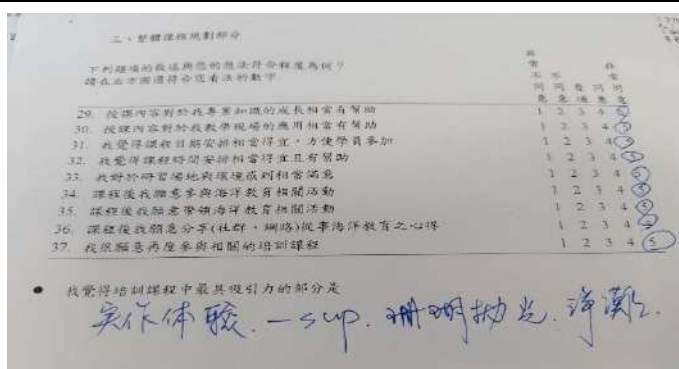 三、整體課程規劃部分
下列題項的敘述與您的想法符合程度為何？
請在右方圈選符合您看法的數字
非常不同意 不同意 普通 同意 非常同意
29. 授課內容對於我專業知識的成長相當有幫助 1 2 3 4 5
30. 授課內容對於我教學現場的應用相當有幫助 1 2 3 4 5
31. 我覺得課程日期安排相當得宜，方便學員參加 1 2 3 4 5
32. 我覺得課程時間安排相當得宜且有幫助 1 2 3 4 5
33. 我對於研習場地與環境感到相當滿意 1 2 3 4 5
34. 課程後我願意參與海洋教育相關活動 1 2 3 4 5
35. 課程後我願意帶領海洋教育相關活動 1 2 3 4 5
36. 課程後我願意分享(社群、網路)從事海洋教育之心得 1 2 3 4 5
37. 我很願意再度參與相關的培訓課程 1 2 3 4 5
● 我覺得培訓課程中最具吸引力的部分是
实作体驗.—sup. 珊瑚拋光. 淨灘.